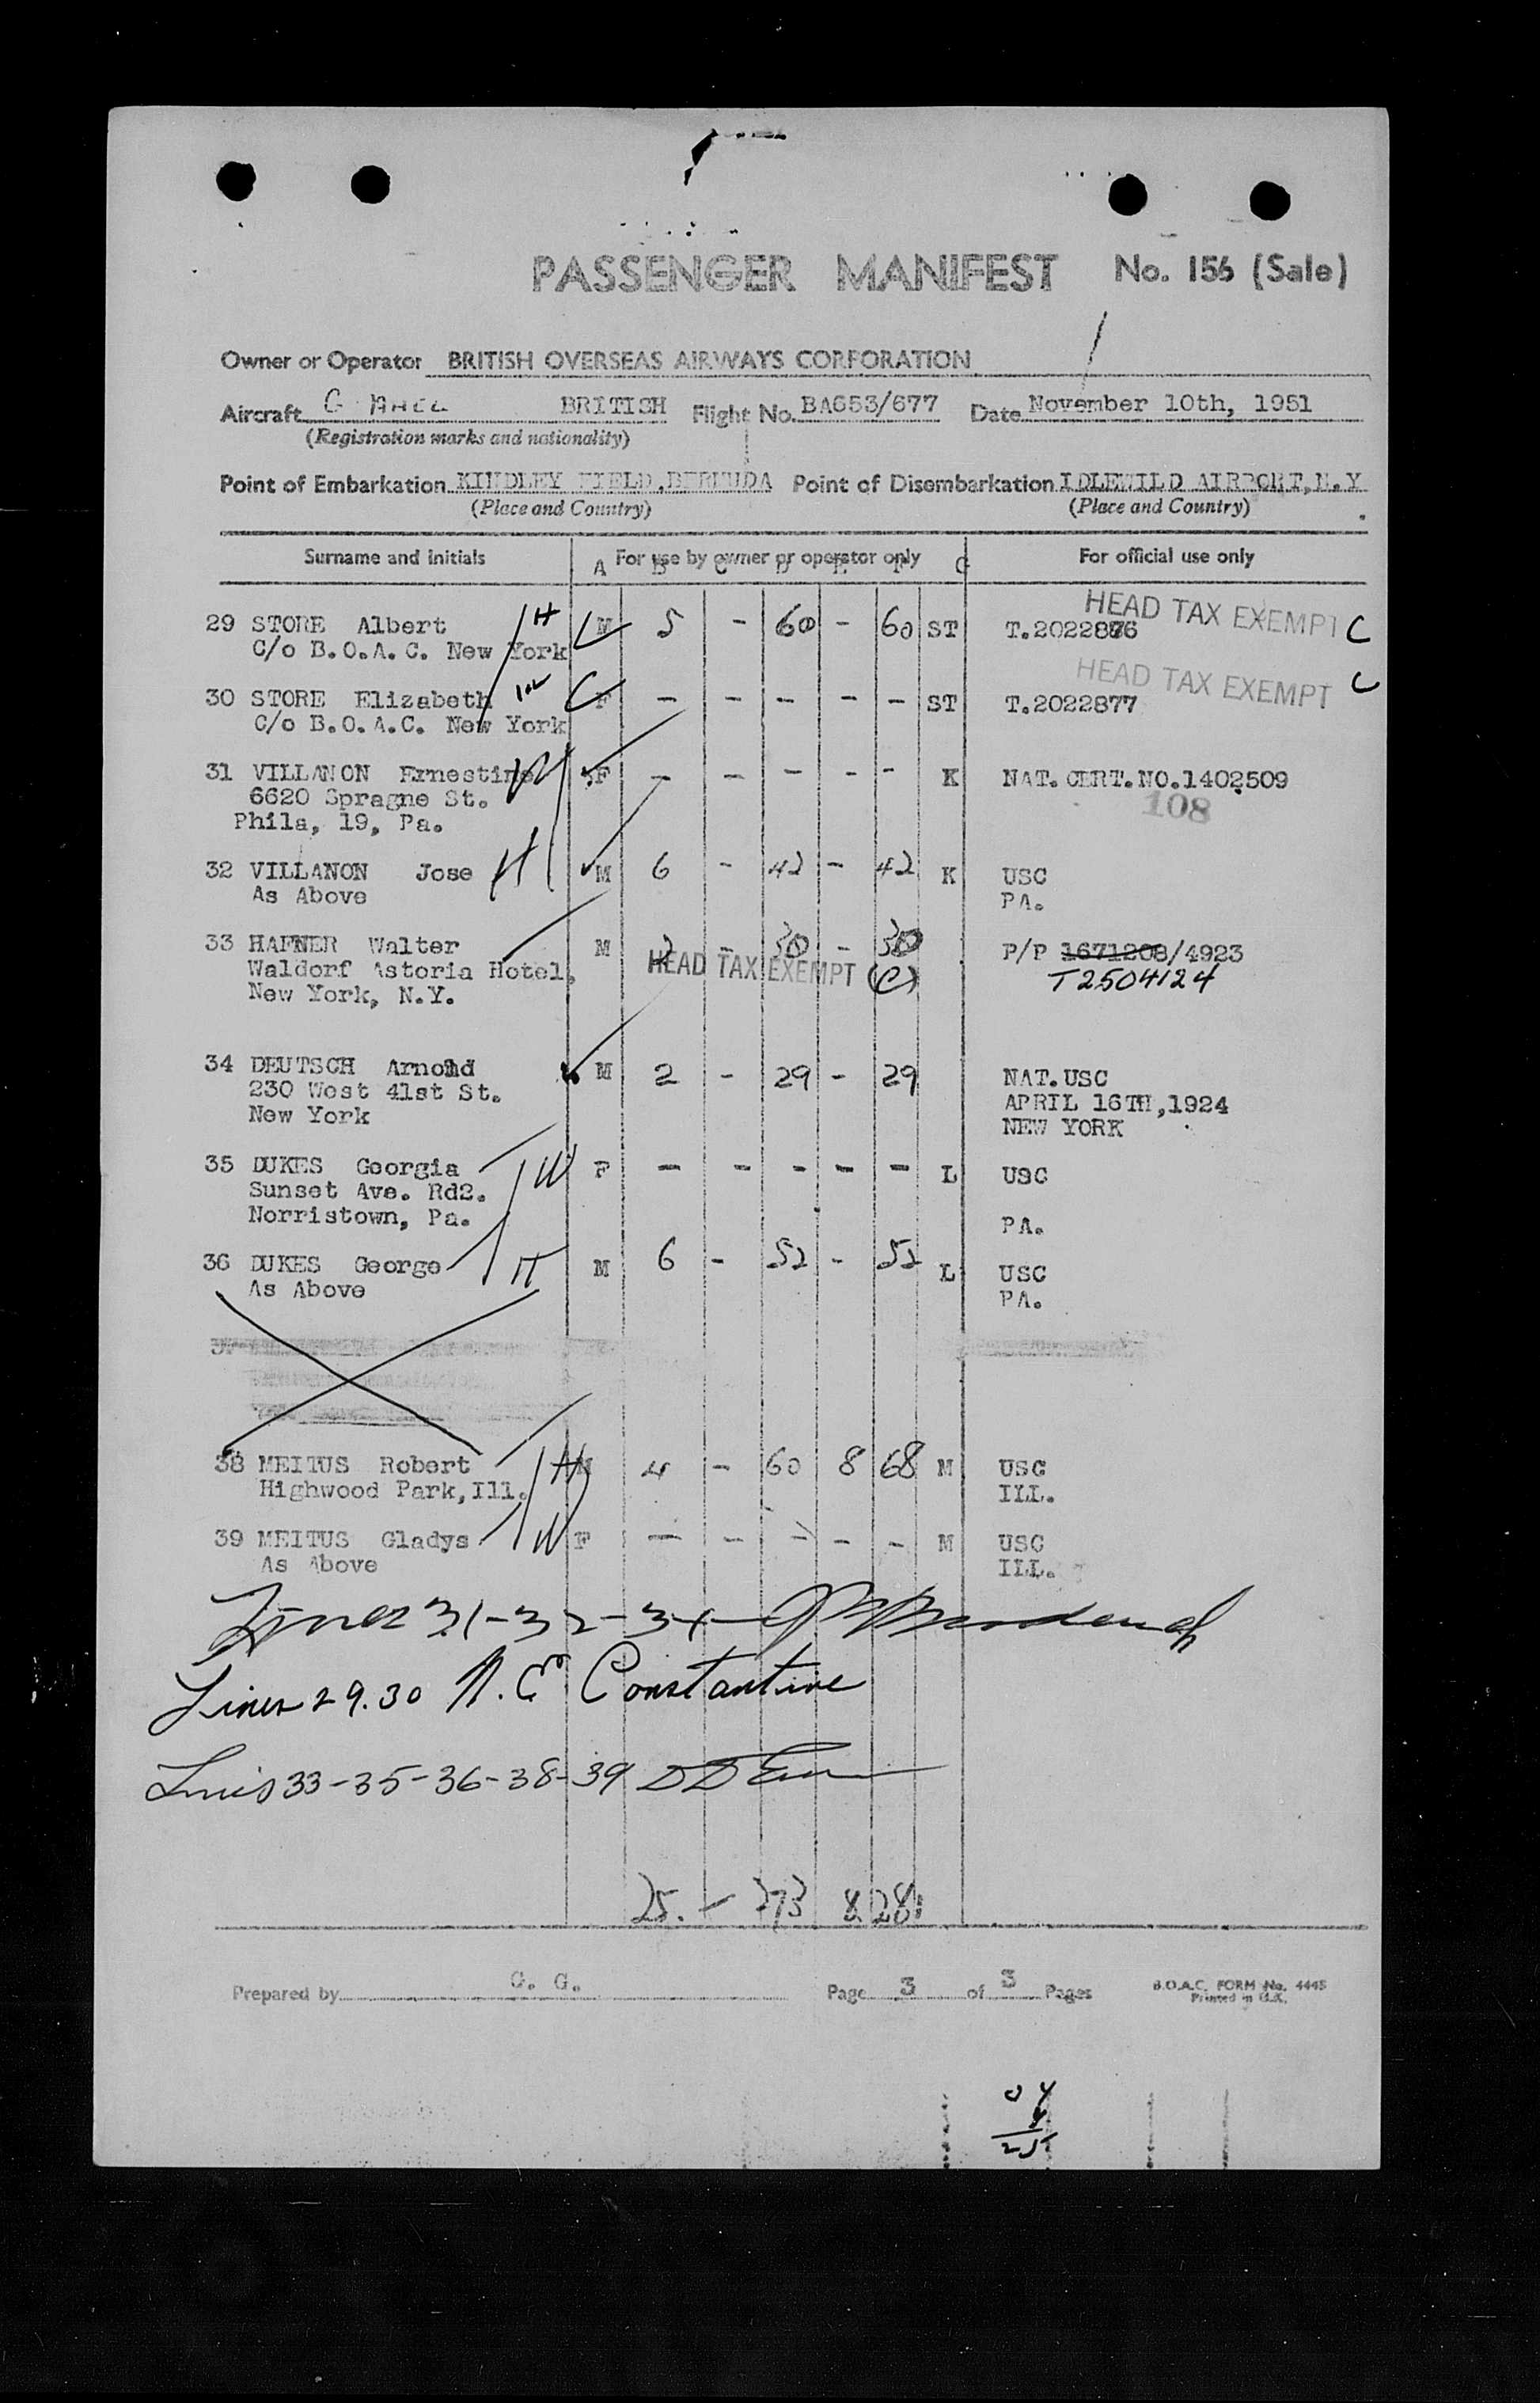 PASSENGER MANIFEST No. 156 (Sale)
Owner or Operator BRITISH OVERSEAS AIRWAYS CORPORATION
Aircraft BRITISH Flight No. BA653/677 Date November 10th, 1951
(Registration marks and nationality)
Point of Embarkation KINDLEY FIELD, BERMUDA Point of Disembarkation IDLEWILD AIRPORT, N.Y
(Place and Country) (Place and Country)
Surname and initials For use by owner or operator only For official use only
A B C D E F G
HEAD TAX EXEMPT C
29 STORE Albert H M 5 - 60 - 60 ST T.2022876
C/o B.O.A.C. New York
HEAD TAX EXEMPT C
30 STORE Elizabeth F - - - - - ST T.2022877
C/o B.O.A.C. New York
31 VILLANON Ernestine W F - - - - - K NAT. CERT. NO. 1402509
6620 Spragne St. 108
Phila, 19, Pa.
32 VILLANON Jose H M 6 - 42 - 42 K USC
As Above PA.
33 HAFNER Walter M 2 - 30 - 30 P/P 1671208/4923
Waldorf Astoria Hotel, HEAD TAX EXEMPT (C) T2504124
New York, N.Y.
34 DEUTSCH Arnold M 2 - 29 - 29 NAT. USC
230 West 41st St. APRIL 16TH, 1924
New York NEW YORK
35 DUKES Georgia W F - - - - - L USC
Sunset Ave. Rd2.
Norristown, Pa. PA.
36 DUKES George H M 6 - 52 - 52 L USC
As Above PA.
38 MEITUS Robert H M 4 - 60 8 68 M USC
Highwood Park, Ill. ILL.
39 MEITUS Gladys W F - - - - - M USC
As Above ILL.
Lines 31-32-34-
Lines 29.30 N. E. Constantine
Lines 33-35-36-38-39
25. - 273 8 281
Prepared by C. G. Page 3 of 3 Pages B.O.A.C. FORM No. 4445
Printed in U.K.
25